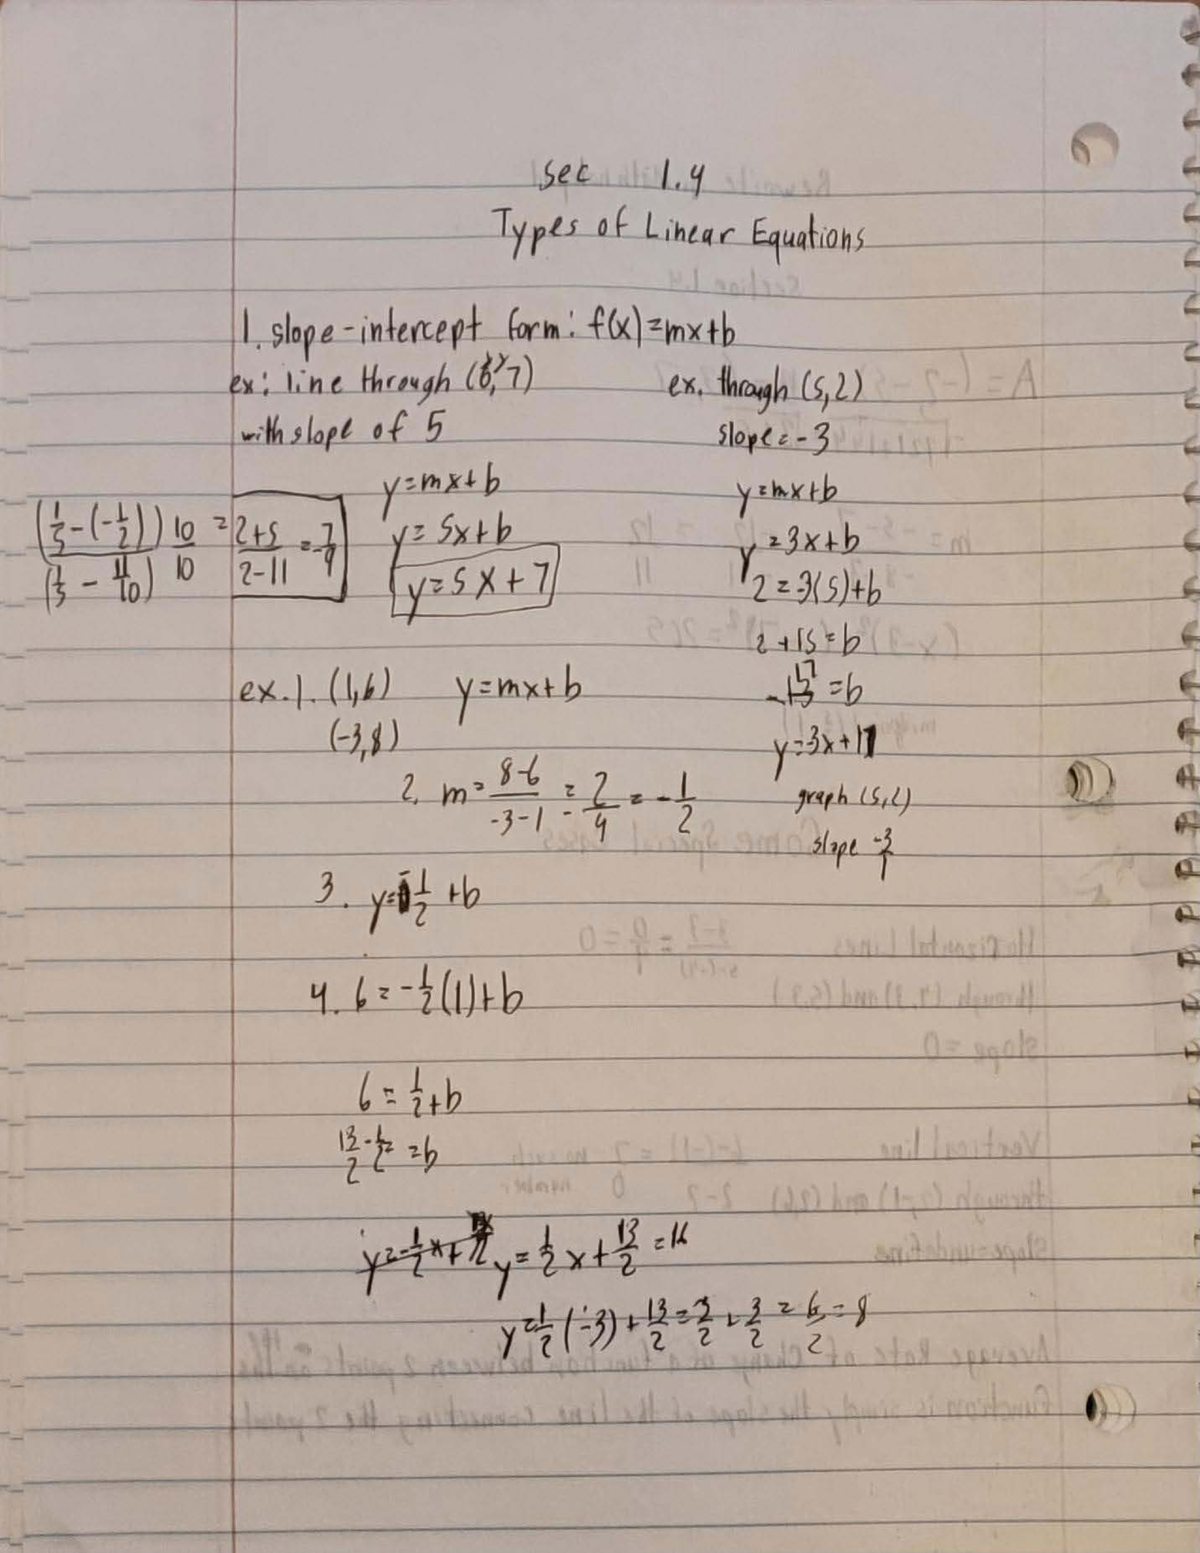 sec 1.4
Types of Linear Equations
1. slope-intercept form: f(x)=mx+b
ex: line through (0,7)
with slope of 5
y=mx+b
y=5x+b
y=5x+7
(1/5-(-1/2)) 10 = 2+5 = -7
(1/5 - 11/10) 10 2-11 9
ex. through (5,2)
slope=-3
y=mx+b
y=3x+b
2=-3(5)+b
2+15=b
17=b
y=3x+17
graph (5,2)
slope -3/1
ex.1. (1,6) y=mx+b
(-3,8)
2. m= 8-6/-3-1 = 2/4 = -1/2
3. y=-1/2 +b
4. 6=-1/2(1)+b
6=1/2+b
=b
y=-1/2x+
y=1/2x+13/2=16
y=1/2(-3)+13/2= +3/2=6/2=8